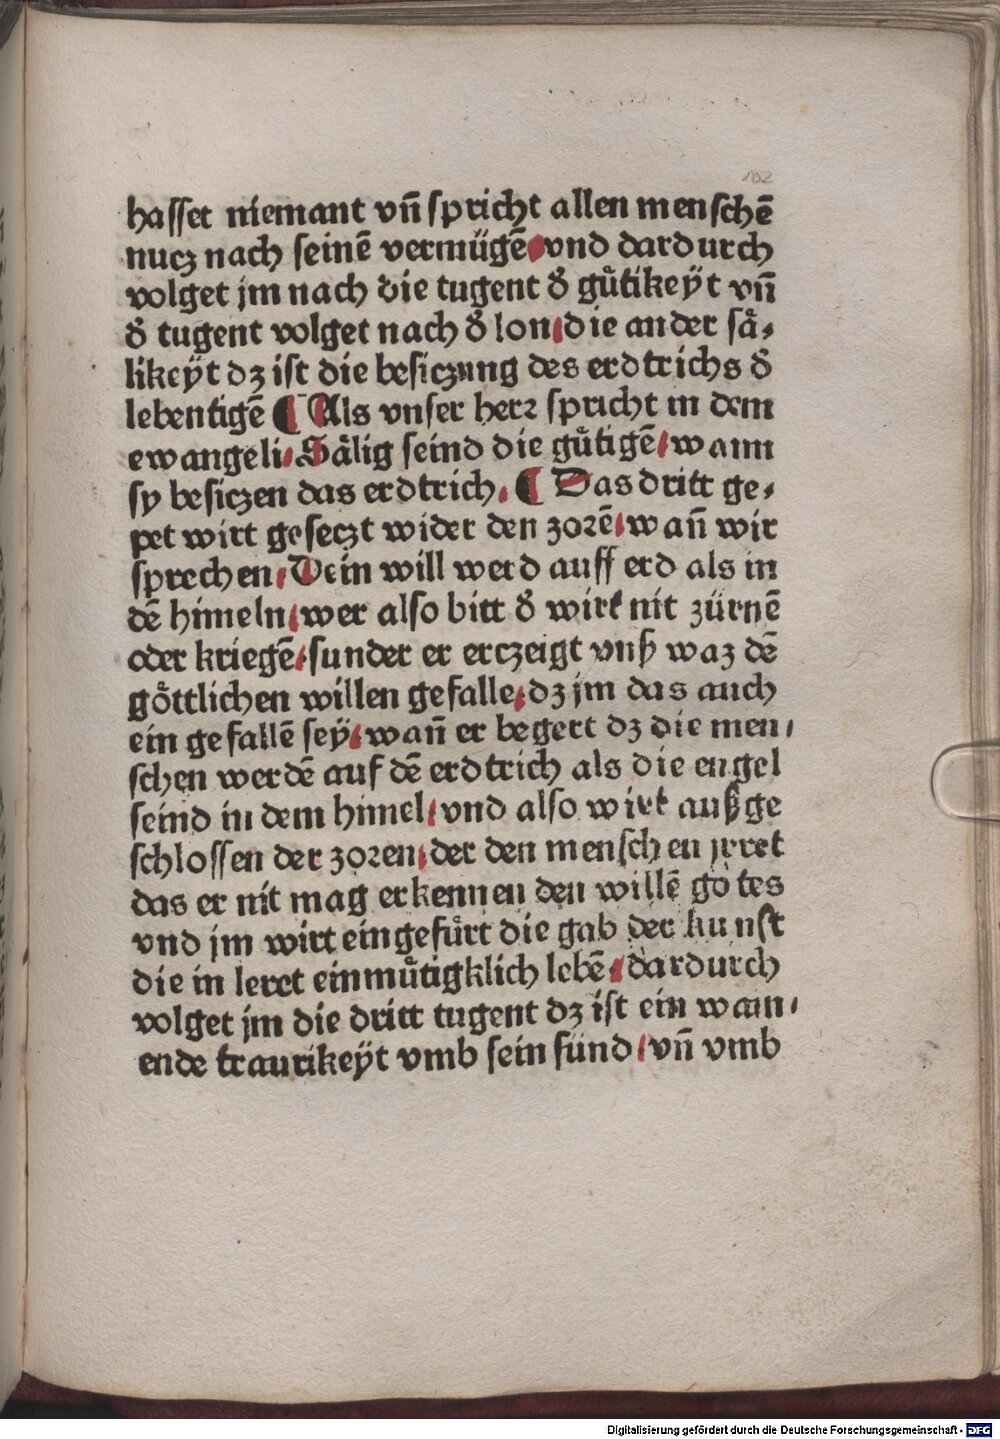 102
hasset niemant vn̄ spricht allen menschē
nucz nach seinē vermügē vnd dardurch
volget jm nach die tugent d̕ gůtikeÿt vn̄
d̕ tugent volget nach d̕ lon / die ander sä⸗
likeÿt dz ist die besiczung des erdtrichs d̕
lebentigē ¶ Als vnser herꝛ spricht in dem
ewangeli / Sälig seind die gůtigē / wann
sy besiczen das erdtrich. ¶ Das dritt ge⸗
pet wirt geseczt wider den zoꝛē / wan̄ wir
sprechen / Dein will werd auff erd als in
dē himeln / wer also bitt d̕ wirt nit zürnē
oder kriegē / sunder er erczeigt vnß waz dē
göttlichen willen gefalle / dz jm das auch
ein gefallē seÿ / wan̄ er begert dz die men⸗
schen werdē auf dē erdtrich als die engel
seind in dem himel / vnd also wirt außge
schlossen der zoꝛen / der den menschen jrret
das er nit mag erkennen den willē gotes
vnd jm wirt eingefůrt die gab der kunst
die in leret einmůtigklich lebē / dardurch
volget jm die dritt tugent dz ist ein wain⸗
ende traurikeÿt vmb sein sünd / vn̄ vmb
Digitalisierung gefördert durch die Deutsche Forschungsgemeinschaft - DFG